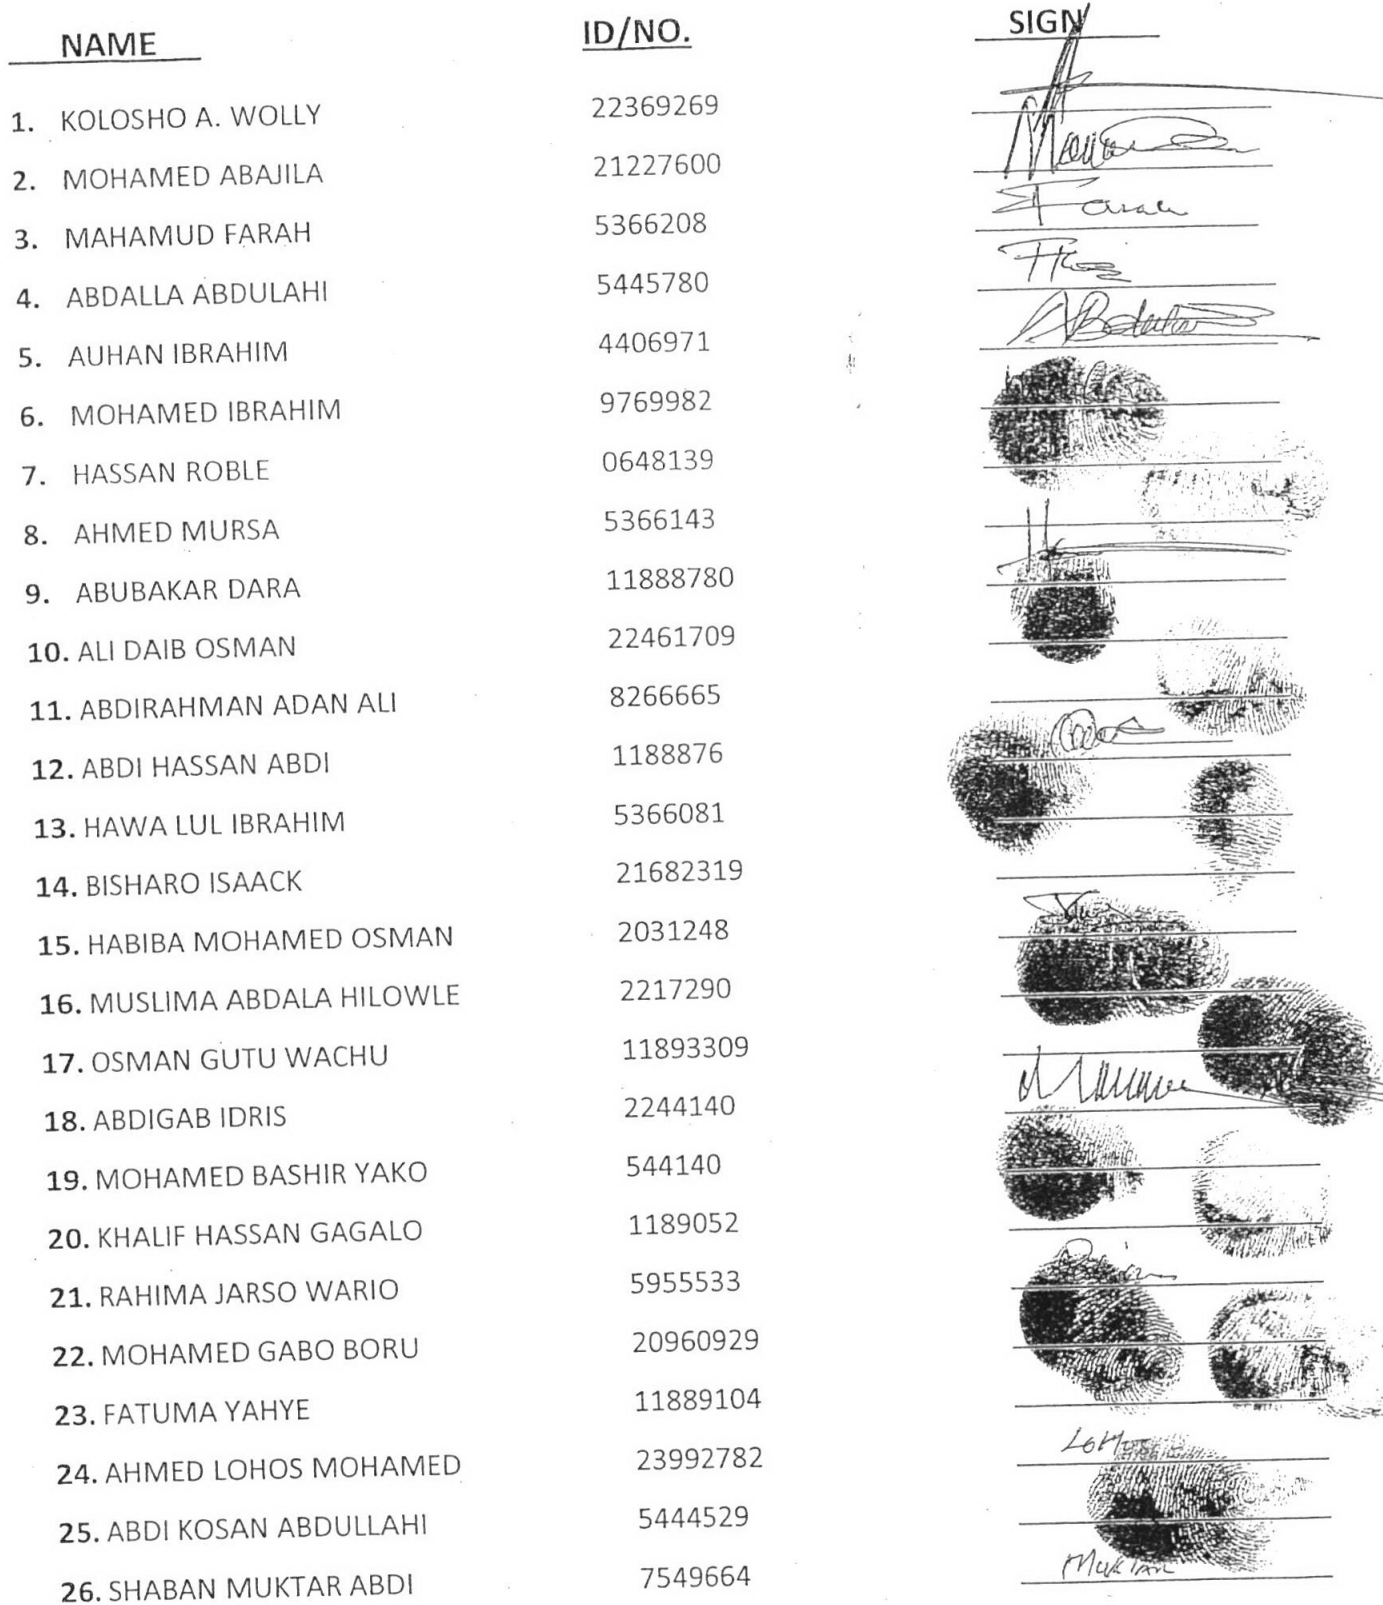 NAME ID/NO. SIGN
1. KOLOSHO A. WOLLY 22369269
2. MOHAMED ABAJILA 21227600
3. MAHAMUD FARAH 5366208 Farah
4. ABDALLA ABDULAHI 5445780
5. AUHAN IBRAHIM 4406971
6. MOHAMED IBRAHIM 9769982
7. HASSAN ROBLE 0648139
8. AHMED MURSA 5366143
9. ABUBAKAR DARA 11888780
10. ALI DAIB OSMAN 22461709
11. ABDIRAHMAN ADAN ALI 8266665
12. ABDI HASSAN ABDI 1188876
13. HAWA LUL IBRAHIM 5366081
14. BISHARO ISAACK 21682319
15. HABIBA MOHAMED OSMAN 2031248
16. MUSLIMA ABDALA HILOWLE 2217290
17. OSMAN GUTU WACHU 11893309
18. ABDIGAB IDRIS 2244140
19. MOHAMED BASHIR YAKO 544140
20. KHALIF HASSAN GAGALO 1189052
21. RAHIMA JARSO WARIO 5955533
22. MOHAMED GABO BORU 20960929
23. FATUMA YAHYE 11889104
24. AHMED LOHOS MOHAMED 23992782 LOHOS
25. ABDI KOSAN ABDULLAHI 5444529
26. SHABAN MUKTAR ABDI 7549664 MUKTAR